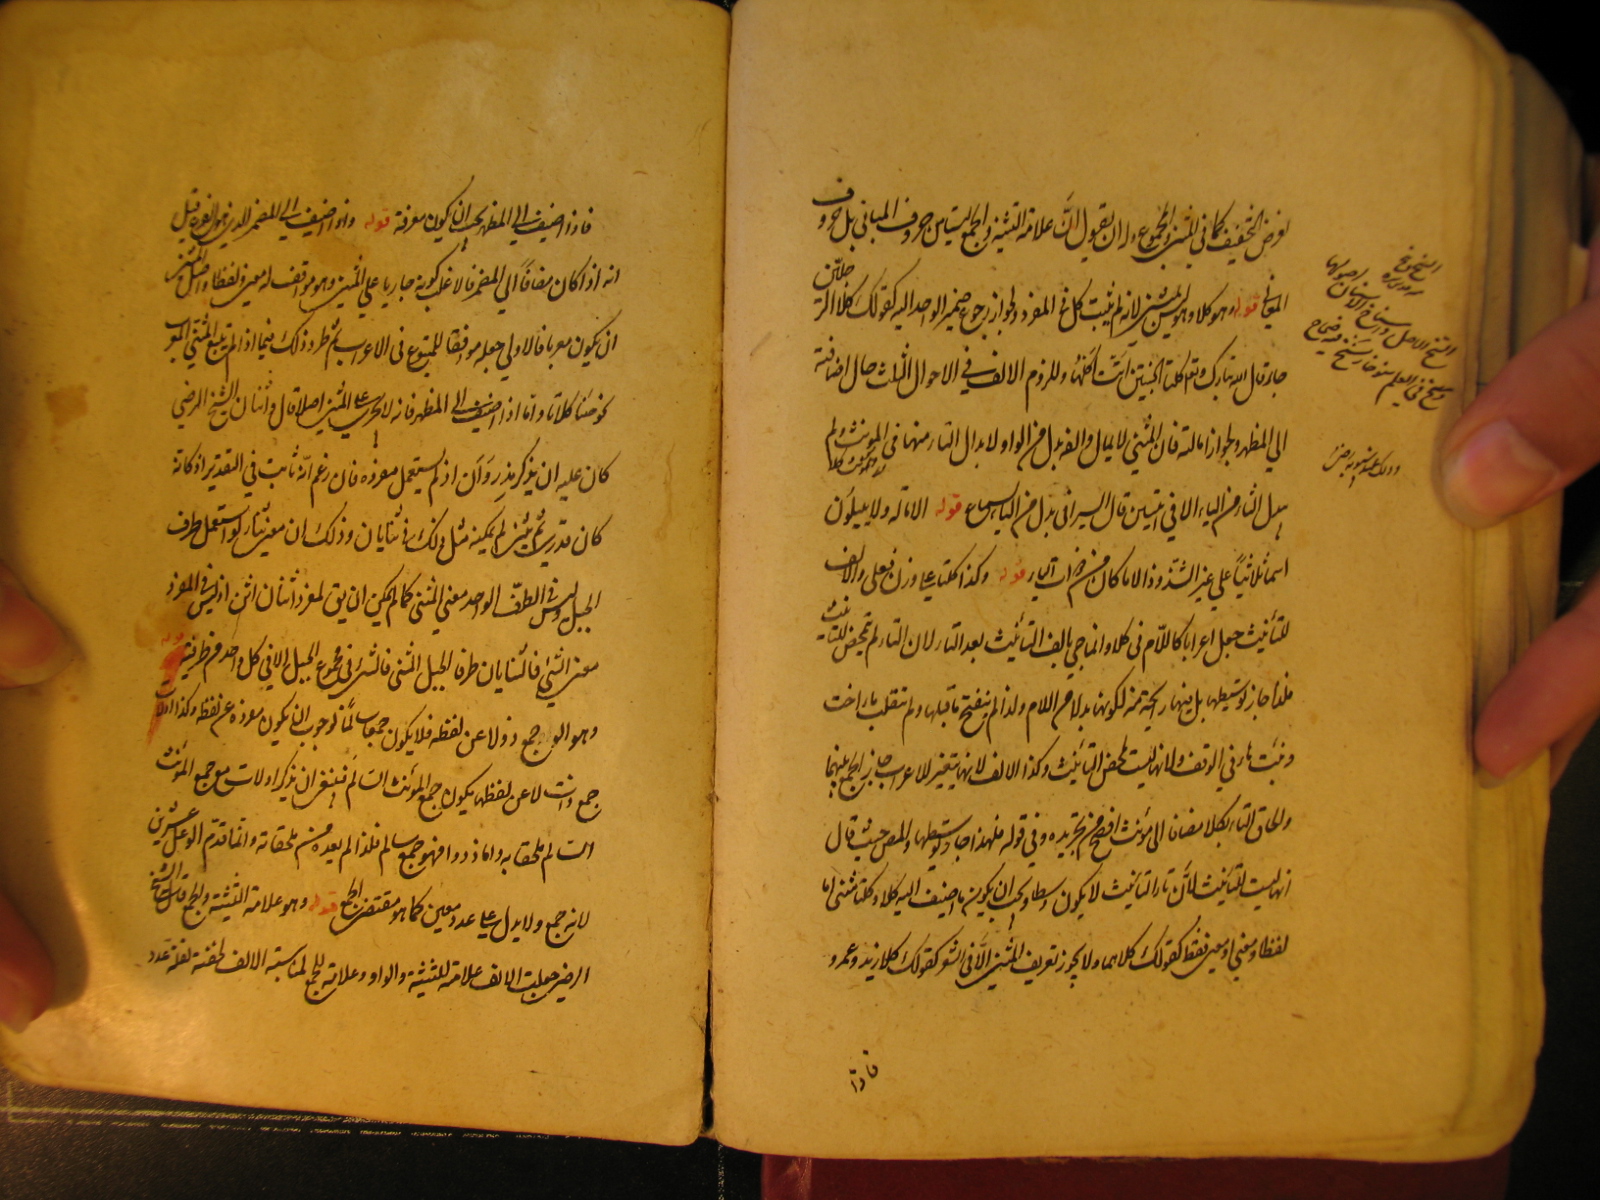 لغرض التخفيف كما في المثنى والمجموع وله ان يقول ان علامة التثنية والجمع ليست من حروف المباني بل حروف
المعاني قوله وهو كلا وهو ليس بمثنى لانه لم يثبت كل في المفرد ولجواز رجوع ضمير الواحد اليه كقولك كلا الرجلين
جاء قال الله تبارك وتعالى كلتا الجنتين اتت اكلها وللزوم الالف في الاحوال الثلث حال اضافته
الى المظهر ولجواز امالته فان المثنى لا يمال والفه بدل من الواو لابدال التاء منها في المونث ولم
يبدل التاء من الياء الا في اثنتين قال السيرافي بدل من الياء لسماع قوله الامالة ولا يميلون
اسما ثلاثيا على غير الشذوذ الا ما كان من ذوات الياء قوله وكذا كلتا على وزن فعلى والالف
للتأنيث جعل اعرابا كاللام في كلا وانما جئ بالف التأنيث بعد التاء لان التاء لم تتمحض للتأنيث
فلذا جاز توسيطها بل فيها رائحة منه لكونها بدلا من اللام ولذا لم ينفتح ما قبلها ولم تنقلب هاء كاخت
وبنت هاء في الوقف ولانها ليست لمحض التأنيث وكذا الالف لانها يتغير للاعراب جاز الجمع بينهما
والحاق التاء بكلا مضافا الى مؤنث افصح من تجريده وفي قوله فلهذا جاز توسيطها والمص حيث قال
انها ليست للتأنيث لان تاء التأنيث لا يكون وسطا ويجب ان يكون ما اضيف اليه كلا وكلتا مثنى اما
لفظا ومعنى او معنى فقط كقولك كلاهما ولا يجوز تفريق المثنى الا في الشعر كقولك كلا زيد وعمرو
فاذا
فاذا اضيف الى المظهر يجب ان يكون معرفة قوله وانه اضيف الى المضمر الذي هو الفرع قيل
انه اذا كان مضافا الى المضمر فالاغلب كونه جاريا على المثنى وهو موافقا له معنى ولفظا واصل المثنى
ان يكون معربا فالاولى جعله موافقا للمتبوع في الاعراب ثم طرد ذلك فيما اذا لم يتبع المثنى المعرب
نحو جئنا كلانا واما اذا اضيف الى المظهر فانه لا يجري على المثنى اصلا قال واثنان الشيخ الرضي
كان عليه ان يذكر مذروان اذ لم يستعمل مفرده فان زعم انه ثابت في التقدير اذ كانه
كان مذرى ثم ثنى لم يمكنه مثل ذلك في ثنايان وذلك ان معنى ثناء لو استعمل طرف
الحبل وليس في الطرف الواحد معنى المثنى كما لم يمكن ان يق لمفرد اثنان اثن اذ ليس في المفرد
معنى الثنى فالثنايان طرفا الحبل المثنى فالثنى في مجموع الحبل لا في كل واحد من طرفيه قوله
وهو الو جمع ذو لا عن لفظه فلا يكون جمعا سالما لوجوب ان يكون مفرده عن لفظه وكذا اولات
جمع ذات لا عن لفظها يكون جمع المؤنث السالم فينبغي ان يذكر اولات مع جمع المؤنث
السالم ملحقا به واما ذووا فهو جمع سالم فلذا لم يعده من ملحقاته وانما قدم الو على عشرين
لانه جمع ولا يدل على عدد معين كما هو مقتضى الجمع قوله وهو علامة التثنية والجمع قال الشيخ
الرضي جعلت الالف علامة للتثنية والواو علامة للجمع لمناسبة الالف لخفته لقلة عدد